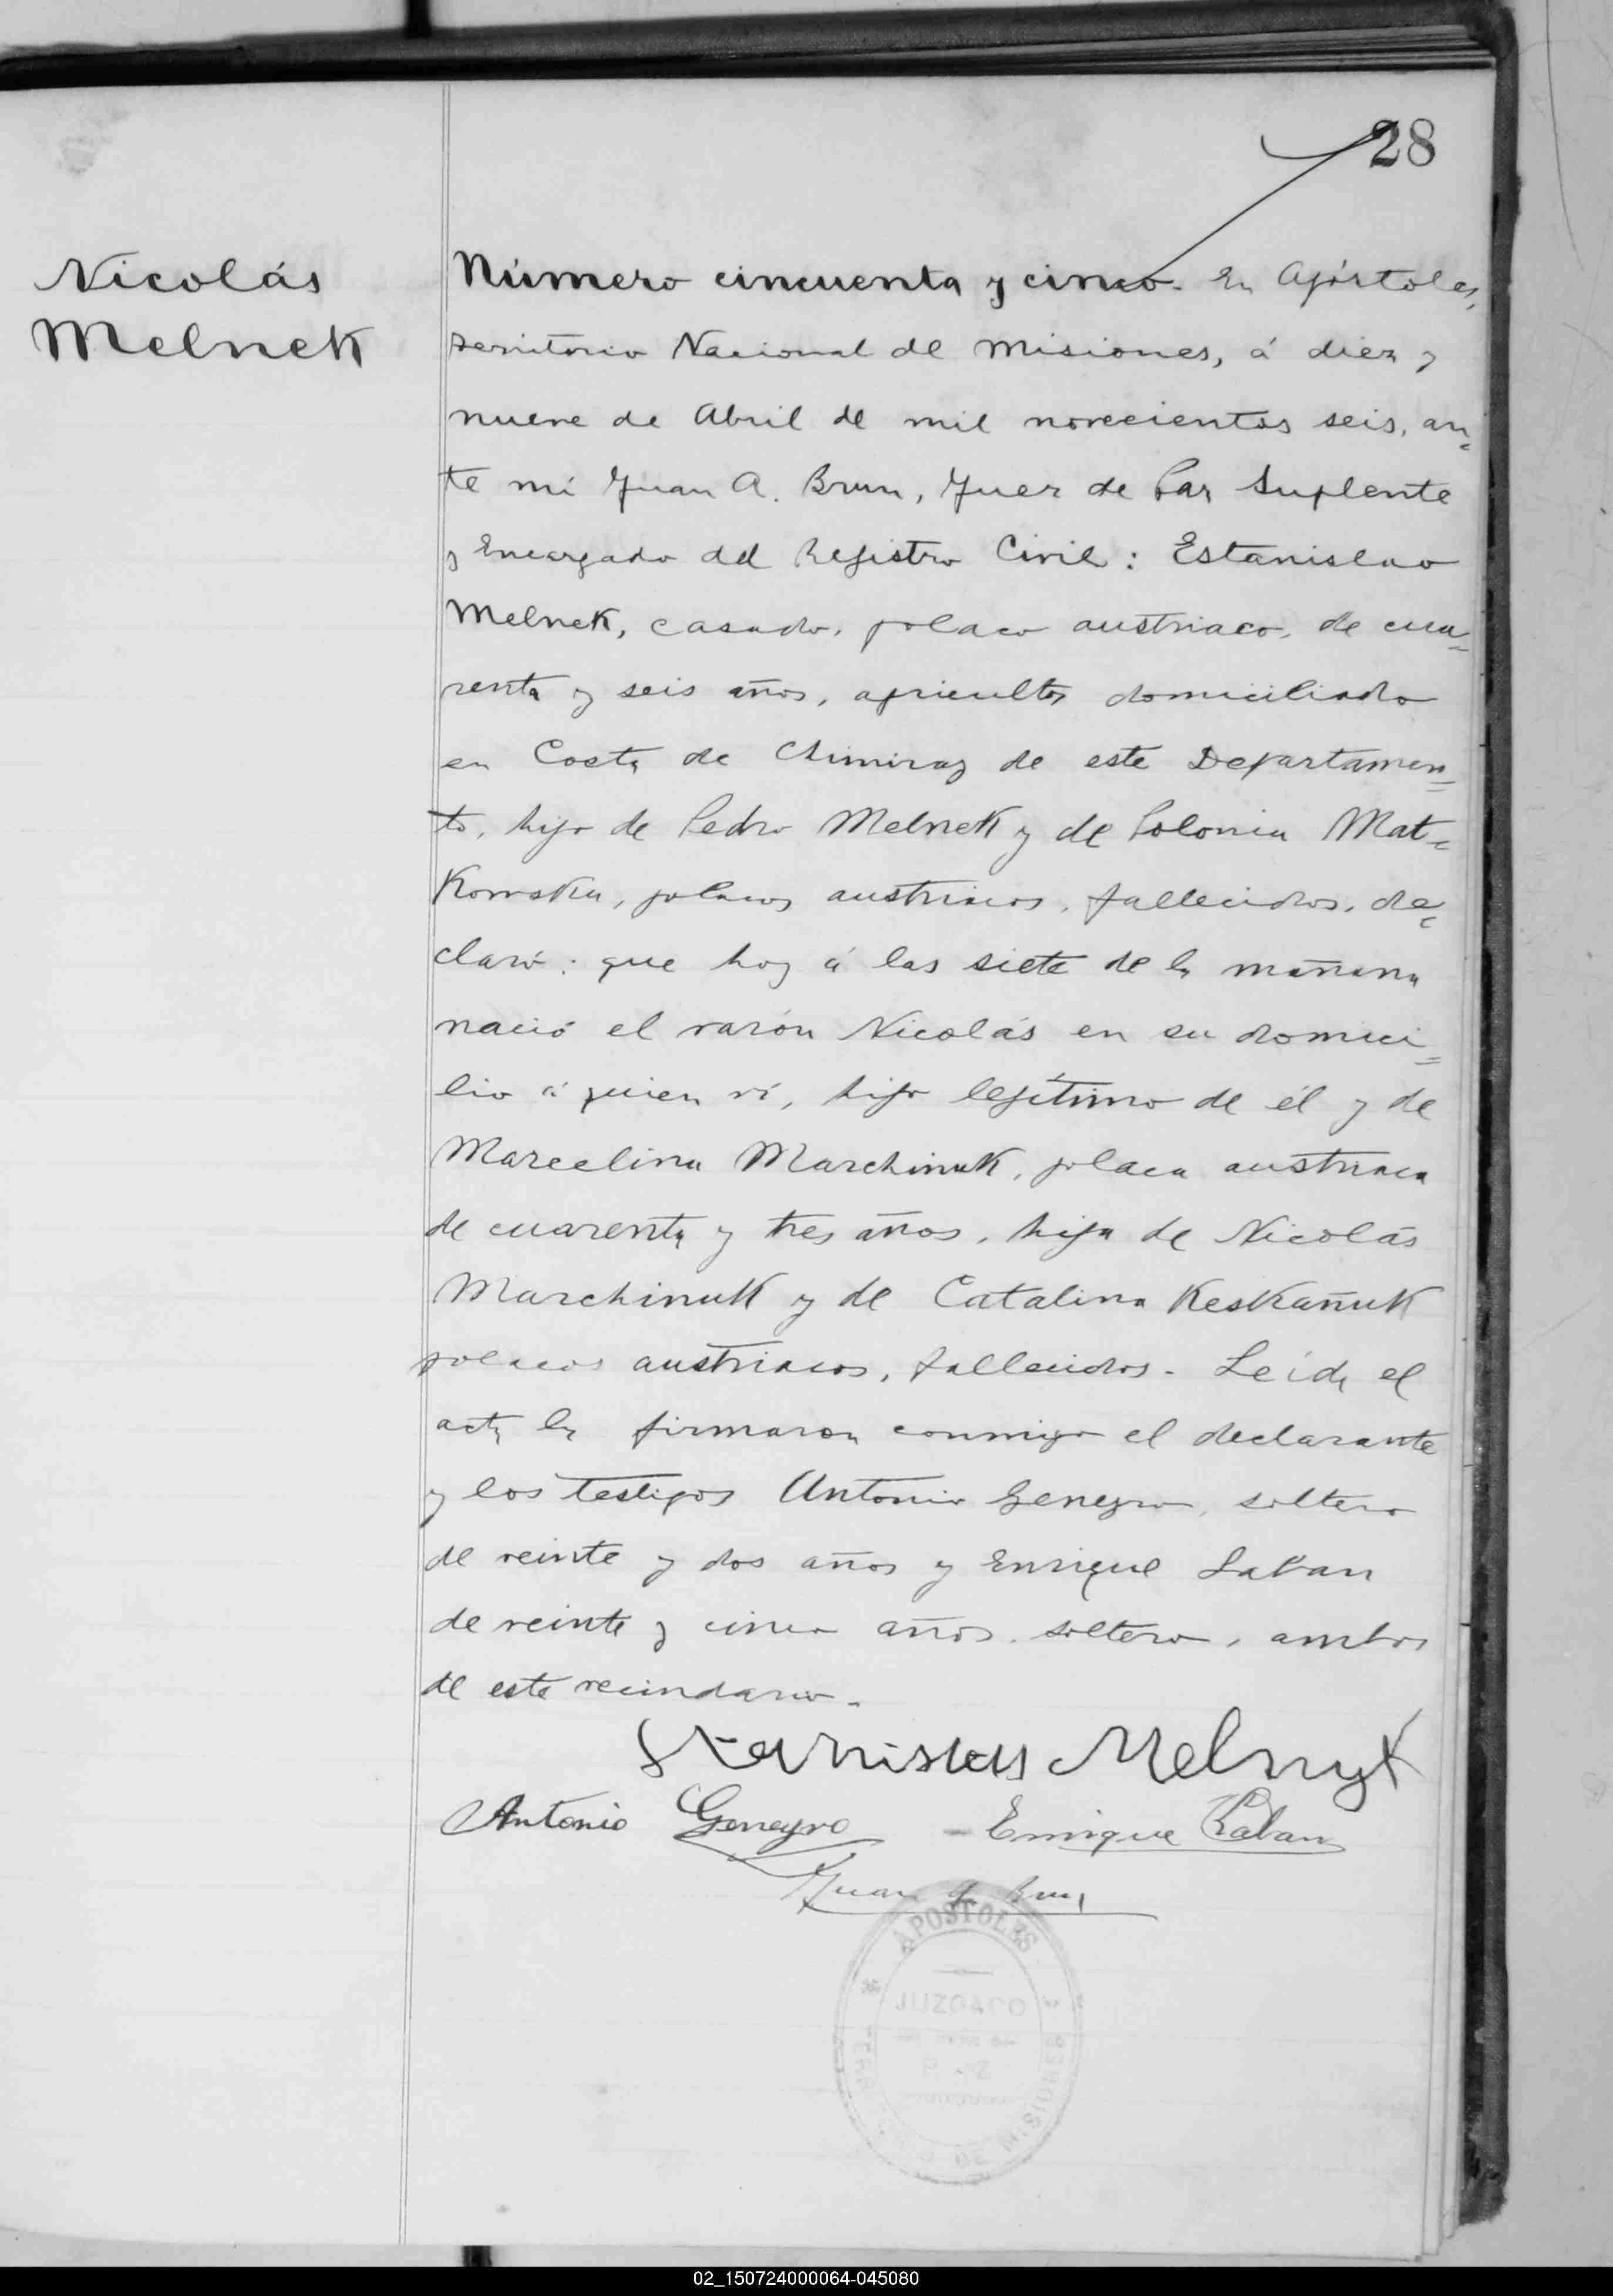 28
Nicolás
Melnek
Número cincuenta y cinco. En Apóstoles,
territorio Nacional de Misiones, á diez y
nueve de Abril de mil novecientos seis, an=
te mí Juan A. Brun, Juez de Paz Suplente
y Encargado del Registro Civil: Estanislao
Melnek, casado, polaco austriaco, de cua=
renta y seis años, agricultor domiciliado
en Costa de Chimiray de este Departamen=
to, hijo de Pedro Melnek y de Polonia Mat=
Kowska, polacos austriacos, fallecidos, de=
claró: que hoy á las siete de la mañana
nació el varón Nicolás en su domici=
lio á quien ví, hijo legítimo de él y de
Marcelina Marchinuk, polaca austriaca
de cuarenta y tres años, hija de Nicolás
Marchinuk y de Catalina Keskañuk
polacos austriacos, fallecidos. Leida el
acta la firmaron conmigo el declarante
y los testigos Antonio Geneyro, soltero
de veinte y dos años y Enrique Laban
de veinte y cinco años, soltero, ambos
de este vecindario.
Stanislas Melnyk
Antonio Geneyro Enrique Laban
Juan A. Brun
APOSTOLES
JUZGADO
DE MISIONES
02_150724000064-045080